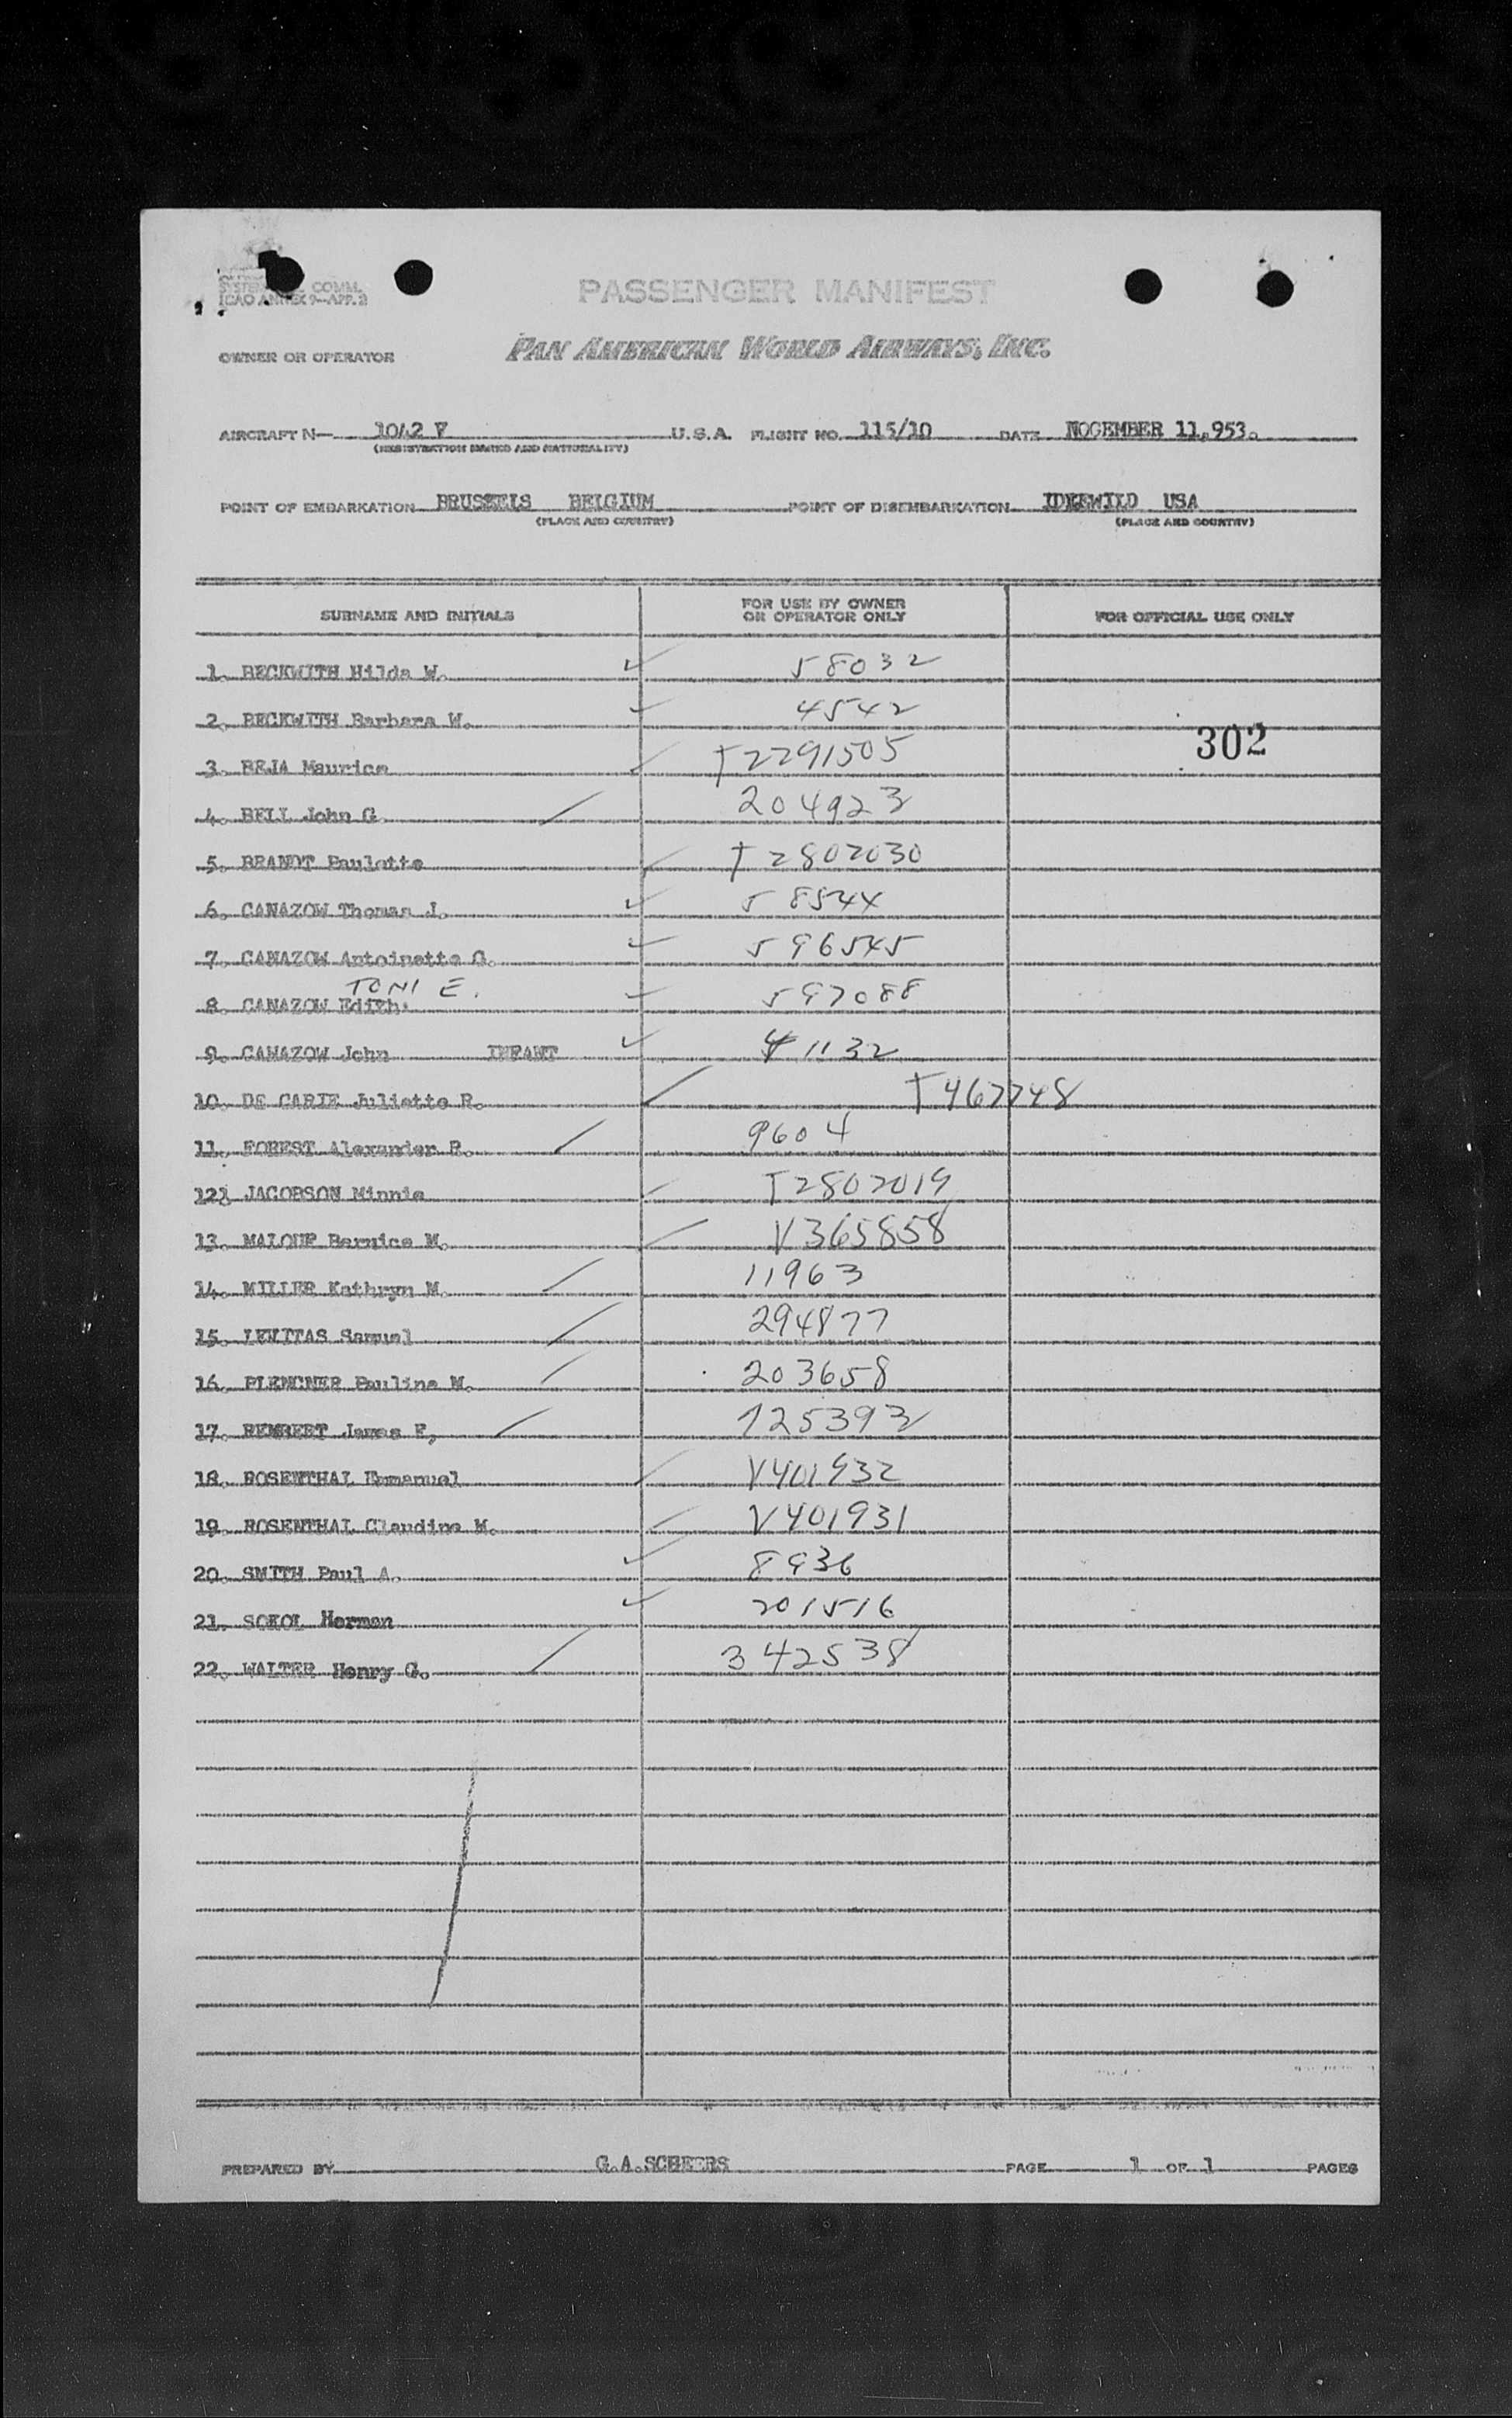 SYSTEM COMM.
ICAO ANNEX 9—APP. 2
PASSENGER MANIFEST
OWNER OR OPERATOR PAN AMERICAN WORLD AIRWAYS, INC.
AIRCRAFT N— 1042 V U.S.A. FLIGHT NO. 115/10 DATE NOCEMBER 11,953.
(REGISTRATION MARKS AND NATIONALITY)
POINT OF EMBARKATION BRUSSELS BELGIUM POINT OF DISEMBARKATION IDLEWILD USA
(PLACE AND COUNTRY) (PLACE AND COUNTRY)
SURNAME AND INITIALS FOR USE BY OWNER OR OPERATOR ONLY FOR OFFICIAL USE ONLY
1. BECKWITH Hilda W. 58032
2. BECKWITH Barbara W. 4542
302
3. BEJA Maurice T2291505
4. BELL John G 204923
5. BRANDT Paulette T2802030
6. CANAZOW Thomas J. 58544
7. CANAZOW Antoinette G. 596545
TONI E.
8. CANAZOW Edith 597088
9. CANAZOW John INFANT 41132
10. DE CARIE Juliette R. T467748
11. FOREST Alexander P. 9604
12. JACOBSON Minnie T2802019
13. MALOUF Bernice M. V365858
14. MILLER Kathryn M. 11963
15. LEVITAS Samuel 294877
16. PLENGNER Pauline M. 203658
17. REMBERT James F, 125393
18. ROSENTHAL Emmanuel V401932
19. ROSENTHAL Claudine M. V401931
20. SMITH Paul A. 8936
21. SOKOL Herman 201516
22. WALTER Henry G. 342538
PREPARED BY G.A.SCHEERS PAGE 1 OF 1 PAGES